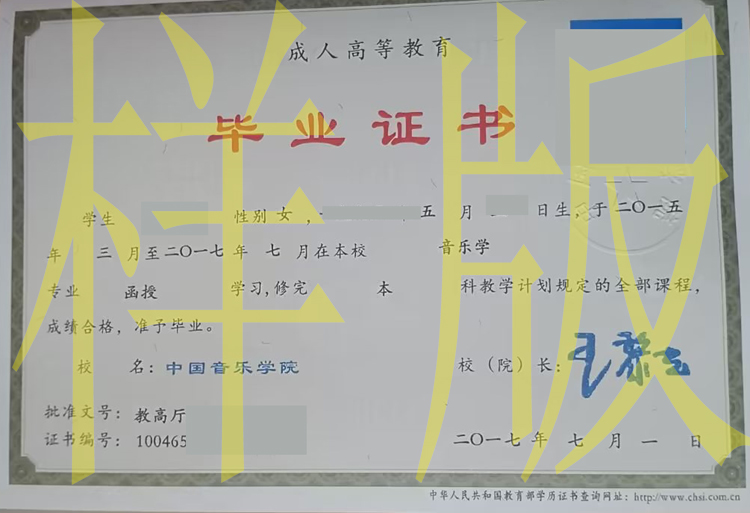 成人高等教育
毕业证书
学生 性别 女, 五 月 日生,于 二〇一五
年 三 月至 二〇一七 年 七 月在本校 音乐学
专业 函授 学习,修完 本 科教学计划规定的全部课程,
成绩合格,准予毕业。
校 名:中国音乐学院 校(院)长:
批准文号:教高厅
证书编号:100465
二〇一七 年 七 月 一 日
中华人民共和国教育部学历证书查询网址:http://www.chsi.com.cn
样版